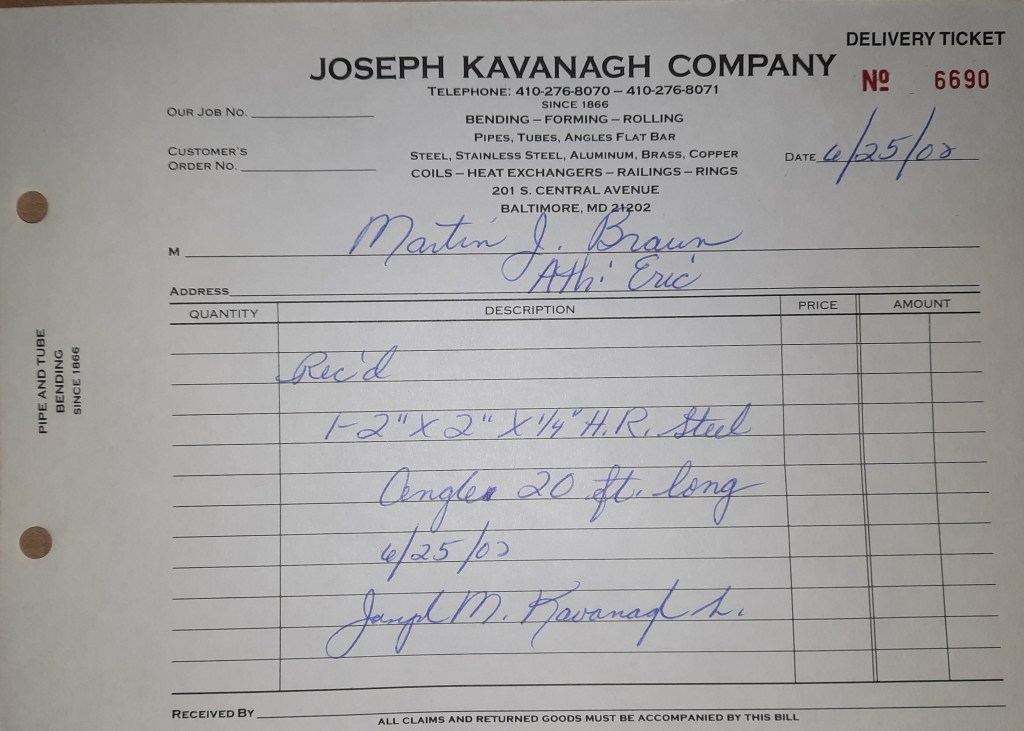 DELIVERY TICKET
JOSEPH KAVANAGH COMPANY
Nº 6690
TELEPHONE: 410-276-8070 – 410-276-8071
SINCE 1866
OUR JOB NO.
BENDING – FORMING – ROLLING
PIPES, TUBES, ANGLES FLAT BAR
CUSTOMER'S
ORDER NO.
STEEL, STAINLESS STEEL, ALUMINUM, BRASS, COPPER
DATE 6/25/02
COILS – HEAT EXCHANGERS – RAILINGS – RINGS
201 S. CENTRAL AVENUE
BALTIMORE, MD 21202
M Martin J. Braun
ADDRESS Eric
QUANTITY DESCRIPTION PRICE AMOUNT
Rec'd
1-2" X 2" X 1/4" H.R. Steel
Angle 20 ft. long
6/25/02
Joseph M. Kavanagh
RECEIVED BY
ALL CLAIMS AND RETURNED GOODS MUST BE ACCOMPANIED BY THIS BILL
PIPE AND TUBE
BENDING
SINCE 1866